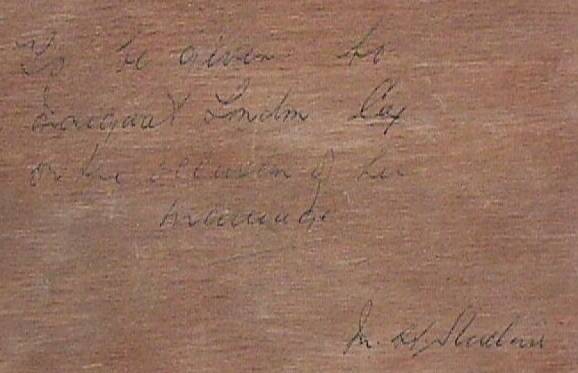 To be given to
Margaret London Cox
on the occasion of her
marriage
M. H. Sinclair